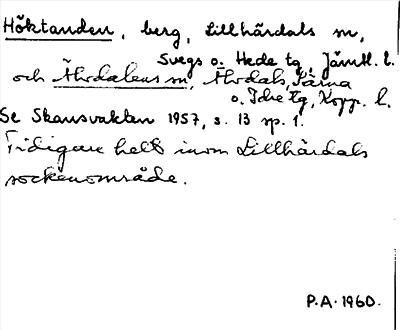 Höktanden, berg, Lillhärdals sn,
Svegs o. Hede tg, Jämtl. l.
och Älvdalens sn, Älvdals, Särna
o. Idre tg, Kopp. l.
Se Skansvakten 1957, s. 13 sp. 1.
Tidigare helt inom Lillhärdals
sockenområde.
P.A. 1960.